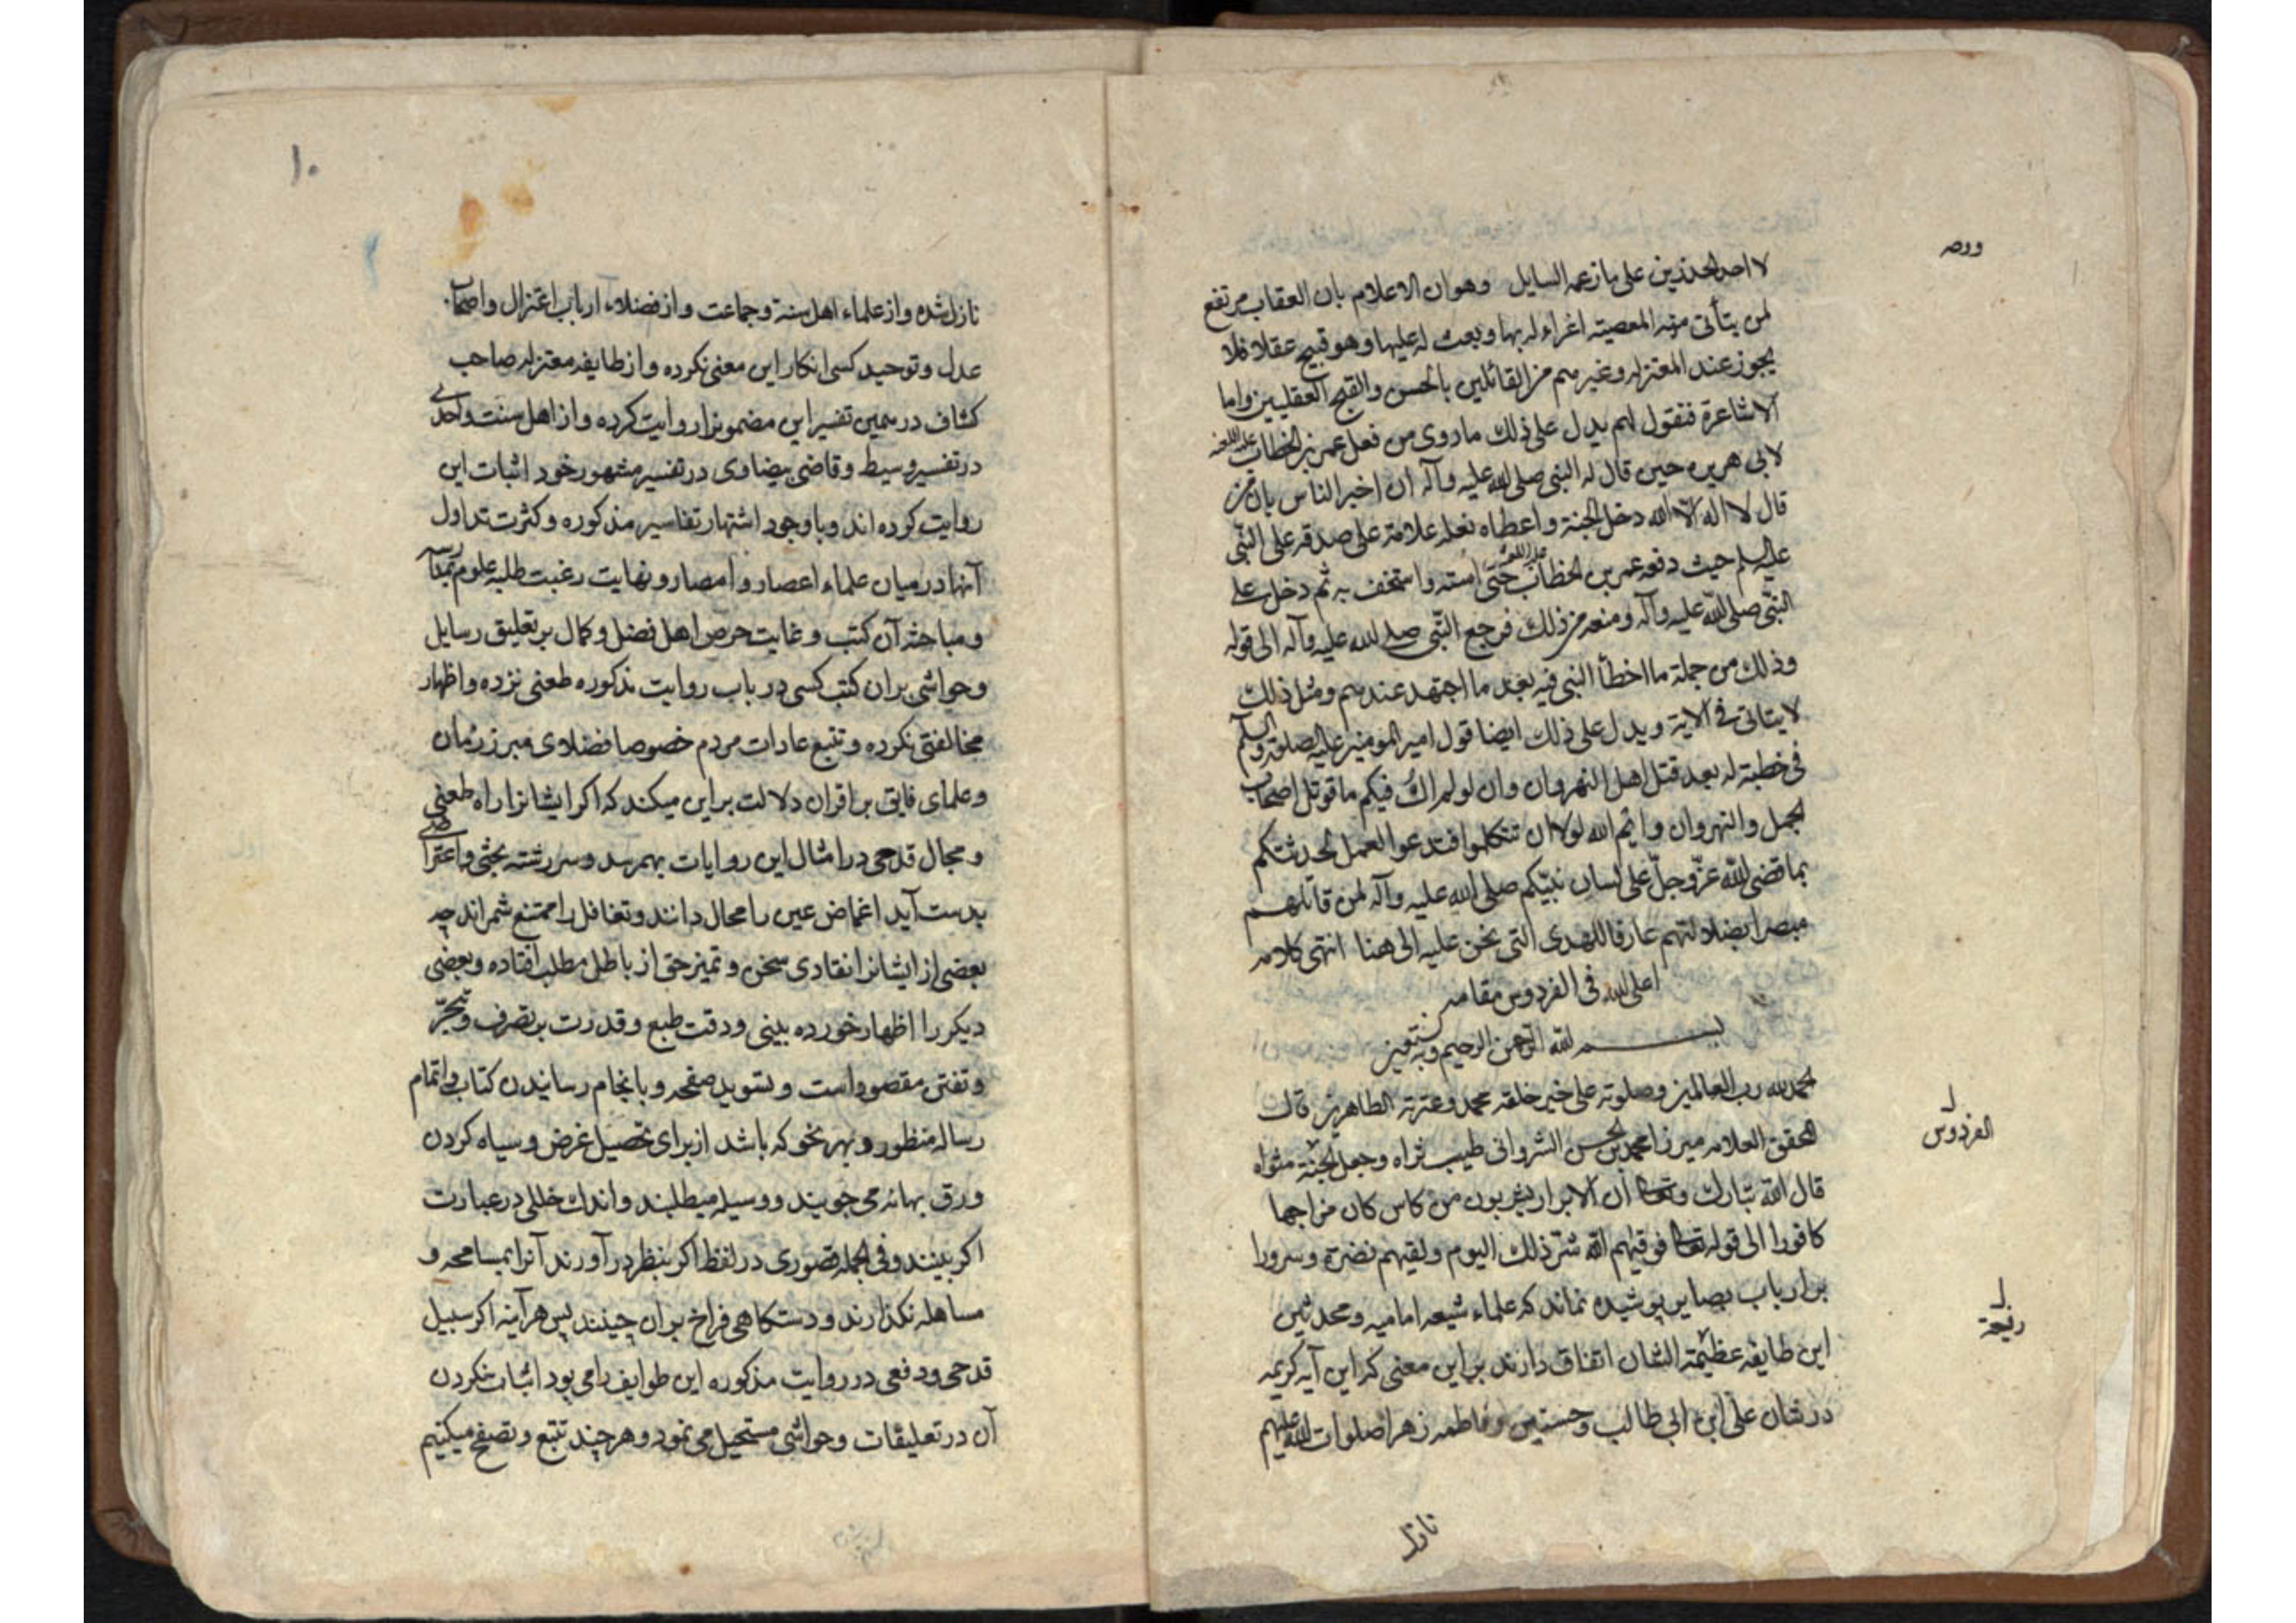 لا احد لحدذين على ما زعمه السايل وهو ان الاعلام بان العقاب مرتفع
لمن يتأتى منه المعصيته اغراء له بها وبعث له عليها وهو قبيح عقلا فلا
يجوز عند المعتزله وغيرهم من القائلين بالحسن والقبح العقليين واما
الاشاعرة فنقول لهم يدل على ذلك ما روى من فعل عمر بن الخطاب
لابى هريره حين قال له النبى صلى الله عليه وآله ان اخبر الناس بان من
قال لا اله الا الله دخل الجنة واعطاه نعله علامة على صدقه على النبى
عليه السلم حيث دفعه عمر بن الخطاب حتى استه واستخف به ثم دخل على
النبى صلى الله عليه وآله ومنعه من ذلك فرجع النبى صلى الله عليه وآله الى قوله
وذلك من جملة ما اخطأ النبى فيه بعد ما اجتهد عندهم ومثل ذلك
لا يتاتى فى الاية ويدل على ذلك ايضا قول امير المومنين عليه الصلوة والسلم
فى خطبة له بعد قتل اهل النهروان وان لو لم اك فيكم ما قوتل اصحاب
الجمل والنهروان وايم الله لولا ان تتكلموا فتدعوا العمل لحدثتكم
بما قضى الله عز وجل على لسان نبيكم صلى الله عليه وآله لمن قاتلهم
مبصرا بضلالتهم عارفا للهدى التى نحن عليه الى هنا انتهى كلامه
اعلى الله فى الفردوس مقامه
بسم الله الرحمن الرحيم وبه نستعين
الحمد لله رب العالمين وصلوته على خير خلقه محمد وعترته الطاهرين قال
المحقق العلامه ميرزا محمد بن الحسن الشروانى طيب ثراه وجعل الجنة مثواه
قال الله تبارك وتعالى ان الابرار يشربون من كاس كان مزاجها
كافورا الى قوله تعالى فوقيهم الله شر ذلك اليوم ولقيهم نضرة وسرورا
بر ارباب بصاير پوشيده نماند كه علماء شيعه اماميه ومحدثين
اين طايفه عظيمة الشان اتفاق دارند بر اين معنى كه اين آيه كريمه
در شان على ابن ابى طالب وحسنين وفاطمه زهرا صلوات الله عليهم
نازل
الفردوس
١٠
نازل شده واز علماء اهل سنة وجماعت واز فضلاء ارباب اعتزال واصحاب
عدل وتوحيد كسى انكار اين معنى نكرده واز طايفه معتزله صاحب
كشاف در همين تفسير اين مضمونرا روايت كرده واز اهل سنت واحدى
در تفسير وسيط وقاضى بيضاوى در تفسير مشهور خود اثبات اين
روايت كرده اند وباوجود اشتهار تفاسير مذكوره وكثرت تداول
آنها در ميان علماء اعصار وامصار ونهايت رغبت طلبه علوم بمدارسه
ومباحثه آن كتب وغايت حرص اهل فضل وكمال بر تعليق رسايل
وحواشى بر ان كتب كسى در باب روايت مذكوره طعنى نزده واظهار
مخالفتى نكرده وتتبع عادات مردم خصوصا فضلاى مبرز زمان
وعلماى فايق بر اقران دلالت بر اين ميكند كه اكر ايشانرا راه طعنى
ومجال قدحى در امثال اين روايات بهم رسد وسر رشته بحثى واعتراضى
بدست آيد اغماض عين را محال دانند وتغافل را ممتنع شمراند چه
بعضى از ايشانرا نقادى سخن وتميز حق از باطل مطلب افتاده وبعضى
ديكر را اظهار خورده بينى ودقت طبع وقدرت بر تصرف وتبحر
وتفنن مقصود است وبتسويد صفحه وبانجام رسانيدن كتاب واتمام
رساله منظور وبهر نحو كه باشد از براى تحصيل غرض وسياه كردن
ورق بهانه مى جويند ووسيله ميطلبند واندك خللى در عبارت
اكر بينند وفى الجمله قصورى در لفظ اكر بنظر در آورند آنرا بمسامحه و
مساهله نكذارند ودستكاهى فراخ بر ان چينند پس هر آينه اكر سبيل
قدحى ودفعى در روايت مذكوره اين طوايف را مى بود اثبات نكردن
آن در تعليقات وحواشى مستحيل مى نمود وهر چند تتبع وتصفح ميكنيم